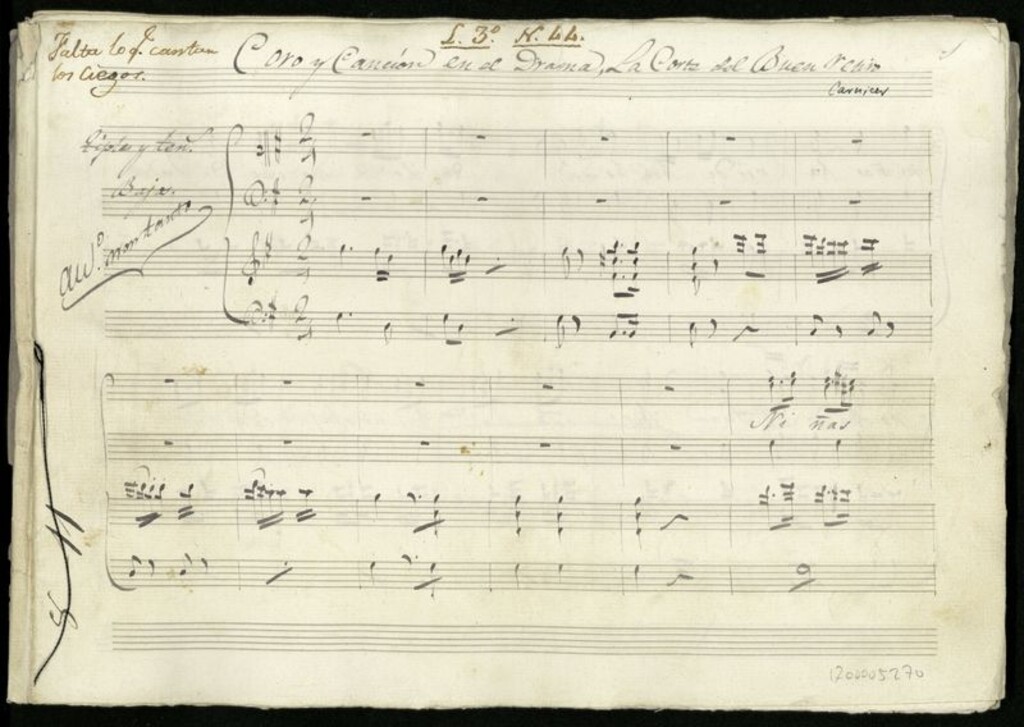 Falta lo q.e cantan
los Ciegos.
L. 3º N. 44.
Coro y Canción en el Drama, La Corte del Buen Retiro
Carnicer
Tiples y ten.s
Bajos.
And.º mon tanto
Ni ñas
1200005270